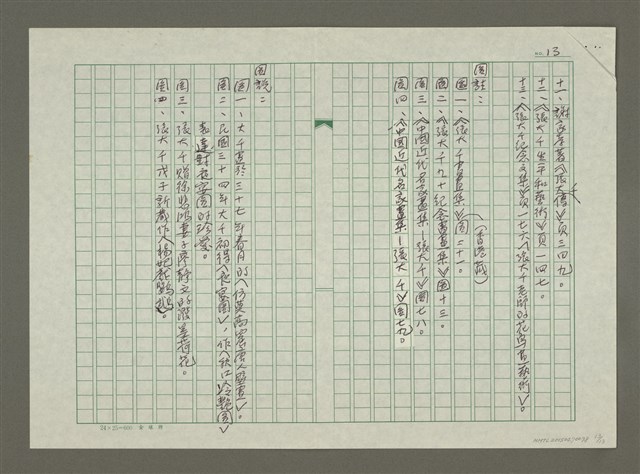 no. 13
十一、謝家孝著《張大千傳》頁三四九。
十二、《張大千生平和藝術》頁一四七。
十三、《張大千紀念文集》頁一七六〈張大千老師的花鳥畫藝術〉。
圖註：
圖一、《張大千書畫集》圖二十一。(香港藏)
圖二、《張大千九十紀念書畫集》圖十三。
圖三、《中國近代名家畫集—張大千》圖七八。
圖四、《中國近代名家畫集—張大千》圖七九。
圖說：
圖一、大千畫於三十七年春月的〈仿莫高窟唐人壁畫〉。
圖二、民國三十四年大千初得〈夜宴圖〉，作〈秋江冷艷圖〉
表達對夜宴圖的珍愛。
圖三、張大千贈徐悲鴻妻子廖靜文的潑墨荷花。
圖四、張大千戊子新都作〈楊妃教鸚鵡〉。
24×25=600